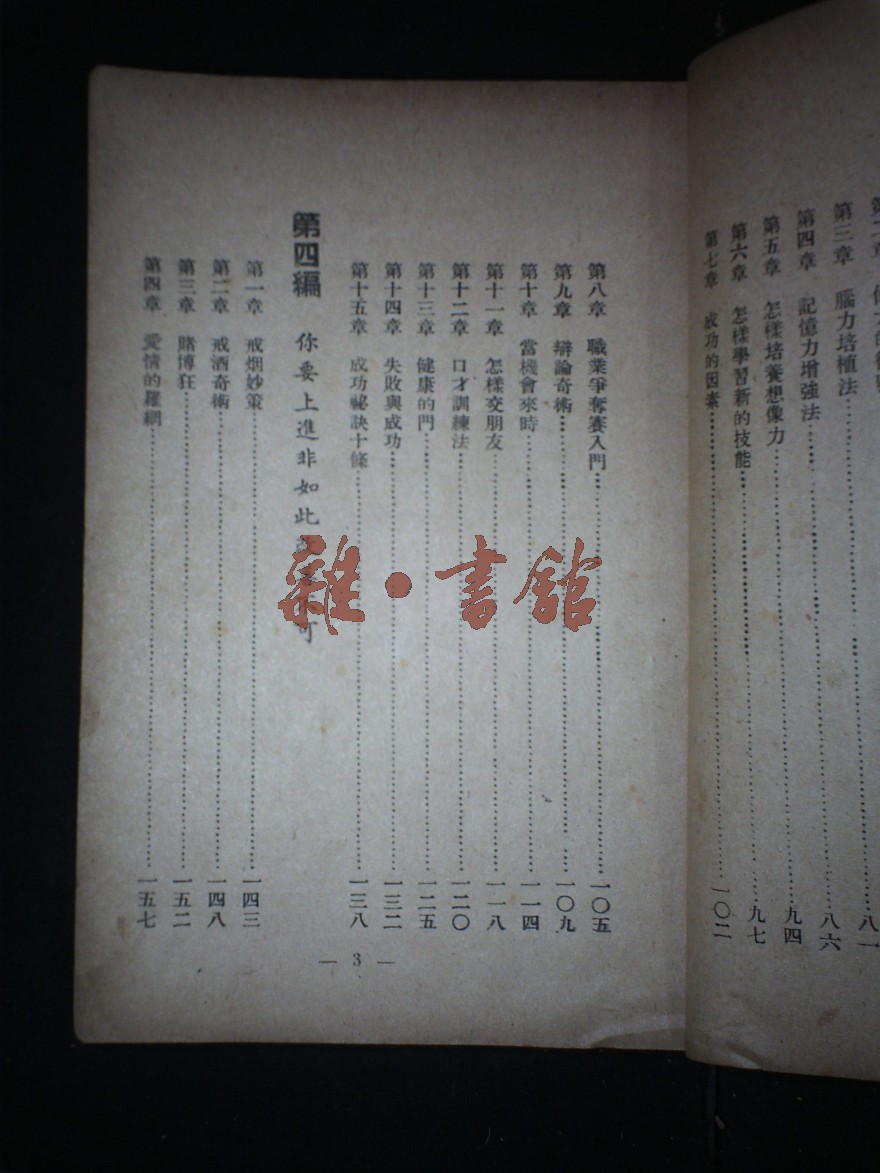 第三章 腦力培植法……八一
第四章 記憶力增強法……八六
第五章 怎樣培養想像力……九四
第六章 怎樣學習新的技能……九七
第七章 成功的因素……一〇二
第八章 職業爭奪賽入門……一〇五
第九章 辯論奇術……一〇九
第十章 當機會來時……一一四
第十一章 怎樣交朋友……一一八
第十二章 口才訓練法……一二〇
第十三章 健康的門……一二五
第十四章 失敗與成功……一三二
第十五章 成功祕訣十條……一三八
第四編 你要上進非如此 可
第一章 戒烟妙策……一四三
第二章 戒酒奇術……一四八
第三章 賭博狂……一五二
第四章 愛情的羅網……一五七
— 3 —
雜·書館